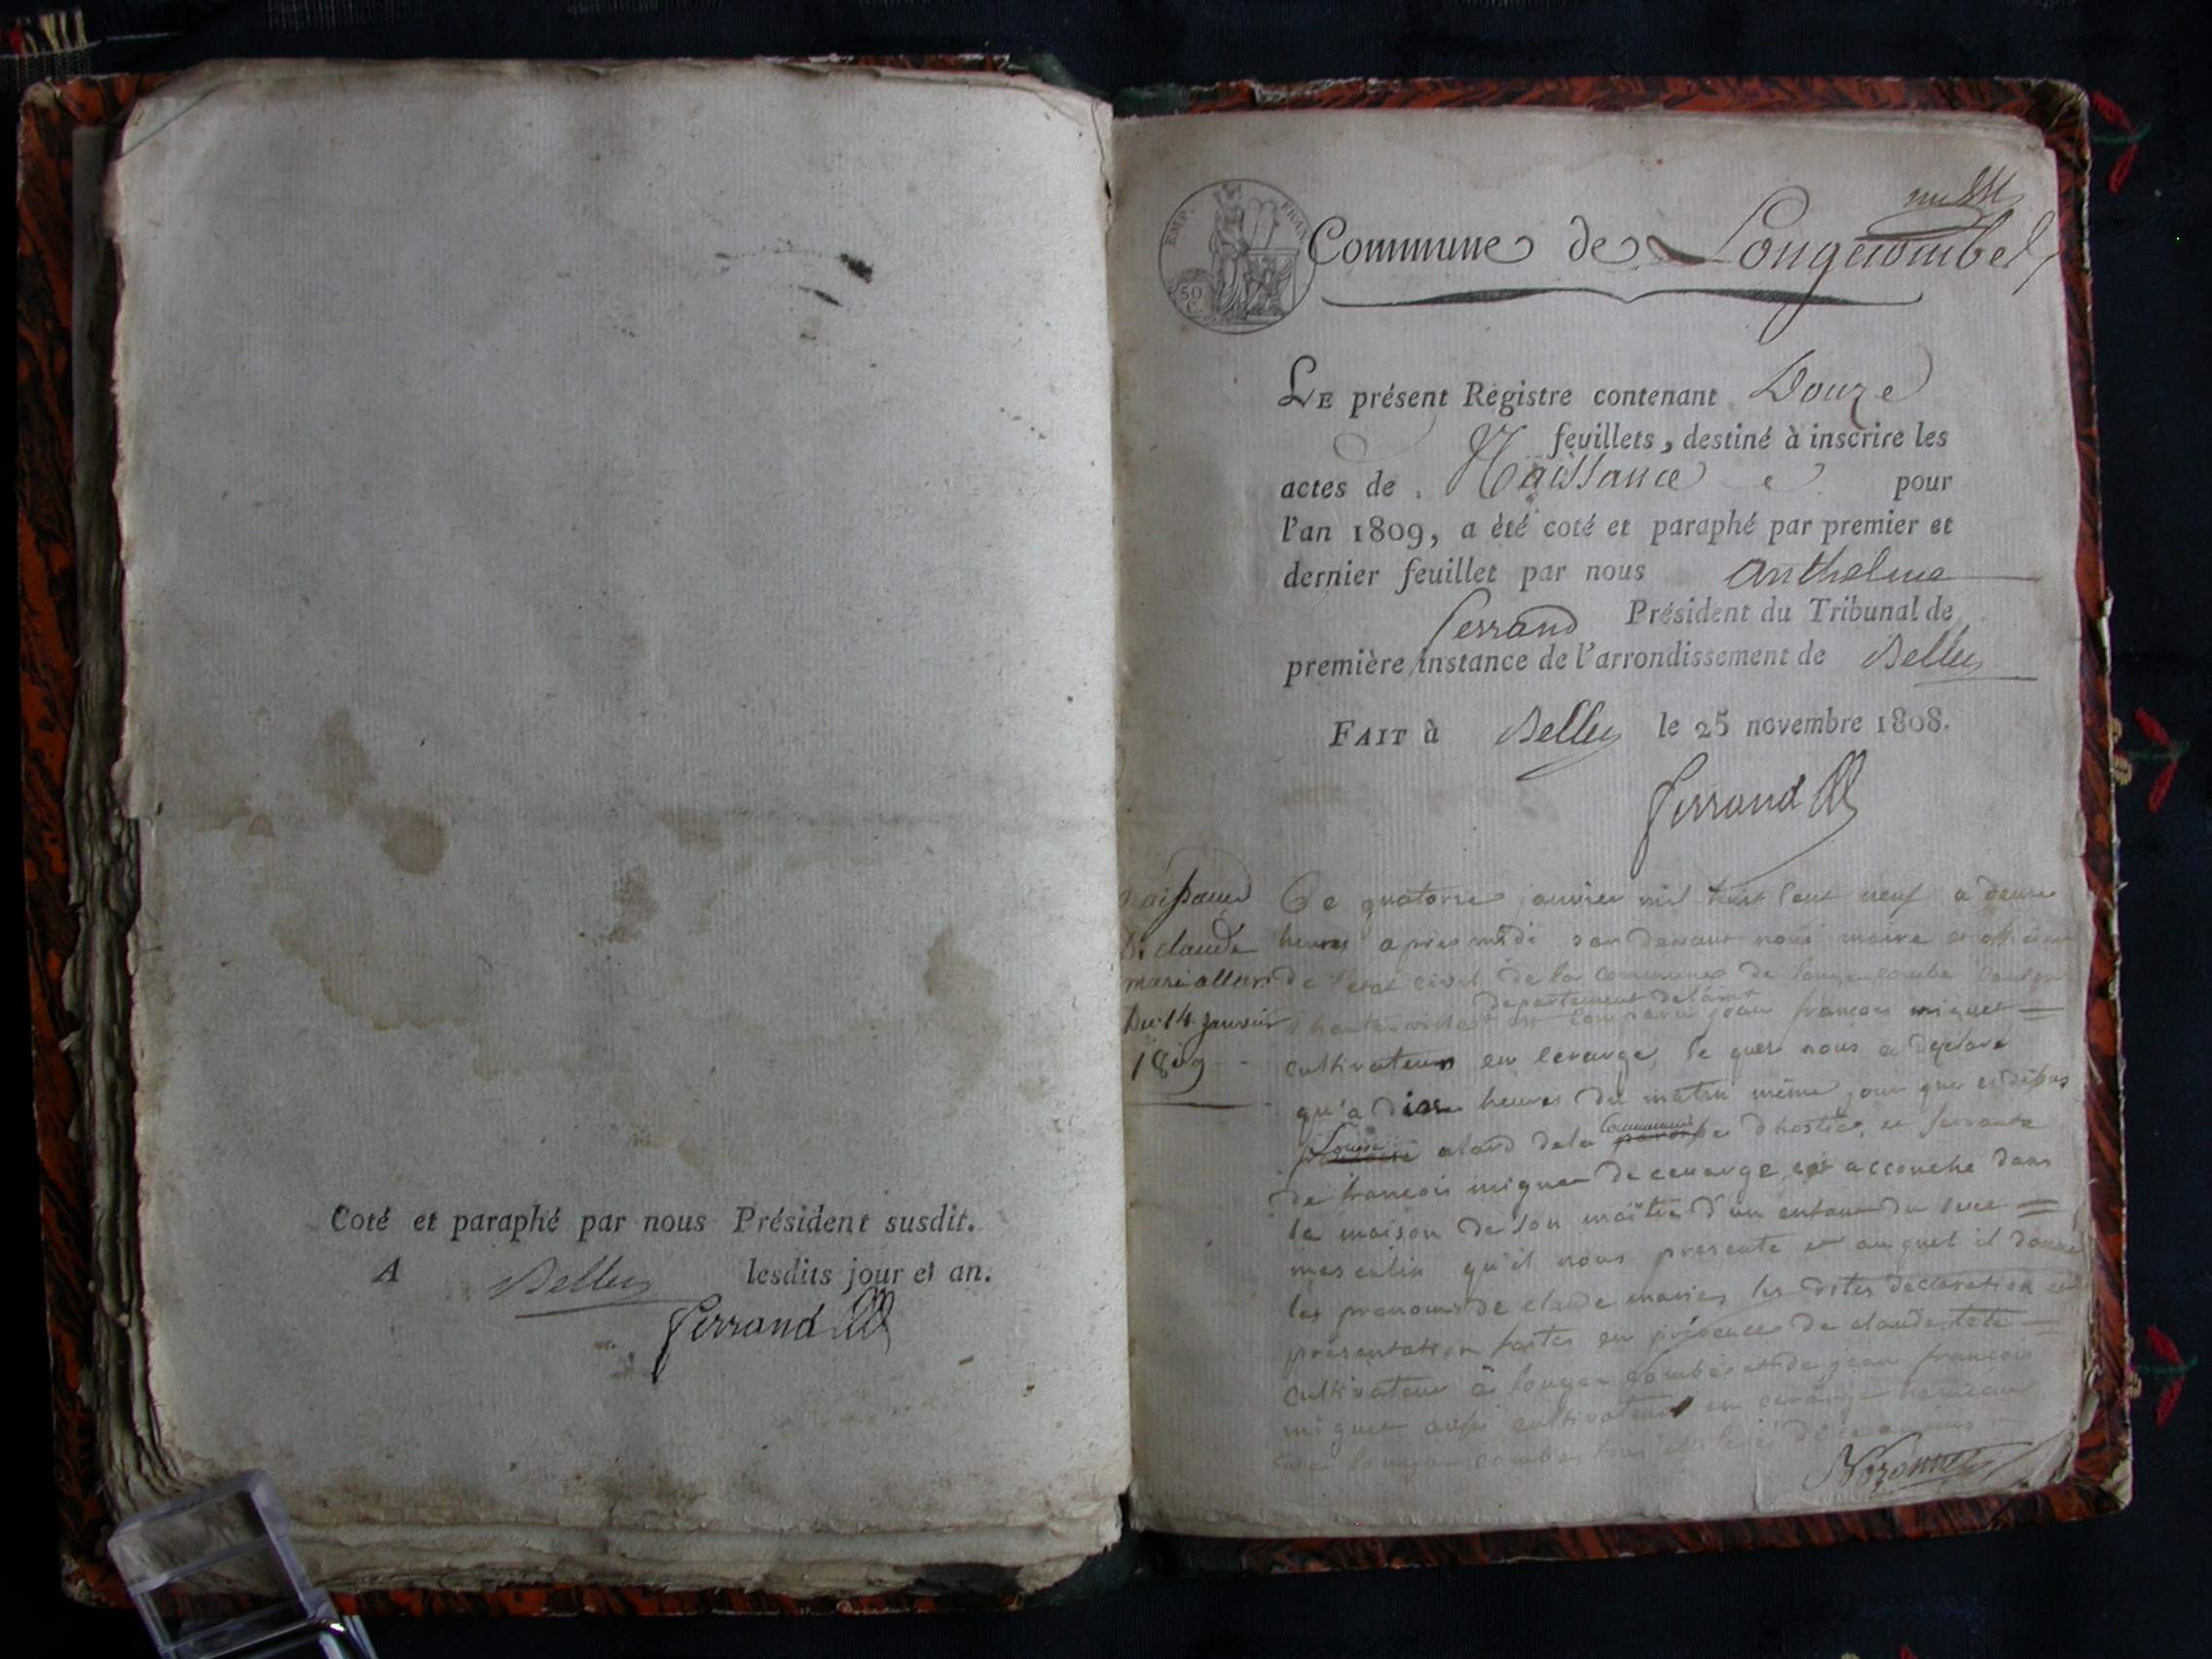 Coté et paraphé par nous Président susdit.
A Belley lesdits jour et an.
Ferrand
EMP. FRAN.
50 C.
Commune de Longecombe
LE présent Registre contenant Douze
feuillets, destiné à inscrire les
actes de Naissance pour
l'an 1809, a été coté et paraphé par premier et
dernier feuillet par nous Anthelme
Ferrand Président du Tribunal de
première instance de l'arrondissement de Belley
FAIT à Belley le 25 novembre 1808.
Ferrand
naissance
De claude
marie
Du 14 janvier
1809
Ce quatorze janvier mil huit cent neuf a deux
heures apres midi par devant nous maire et officier
de l'etat civil de la commune de longecombe canton
d'hauteville departement de l'ain est comparu jean francois miguet
cultivateur en lequel nous a declaré
qu'a dix heures du matin même jour que ci dessus
Louise alard de la Commune d'hostiaz, et servante
de francois miguet de est accouché dans
la maison de son maître d'un enfant du sexe
masculin qu'il nous presente et auquel il donne
les prenoms de claude marie, les dites declaration et
presentation faites en présence de claude tete
cultivateur à longecombe et de jean francois
miguet aussi cultivateur en hameau
de longecombe